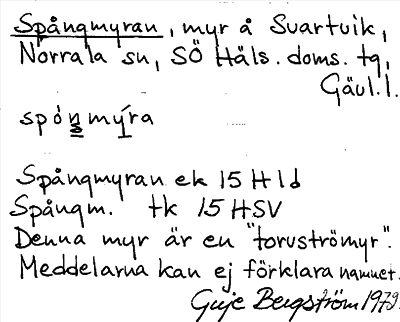 Spångmyran, myr å Svartvik,
Norrala sn, SÖ Häls. doms. tg,
Gävl. l.
spóŋ mýra
Spångmyran ek 15 H 1 d
Spångm. tk 15 HSV
Denna myr är en "toruströmyr".
Meddelarna kan ej förklara namnet.
Guje Bergström 1979.